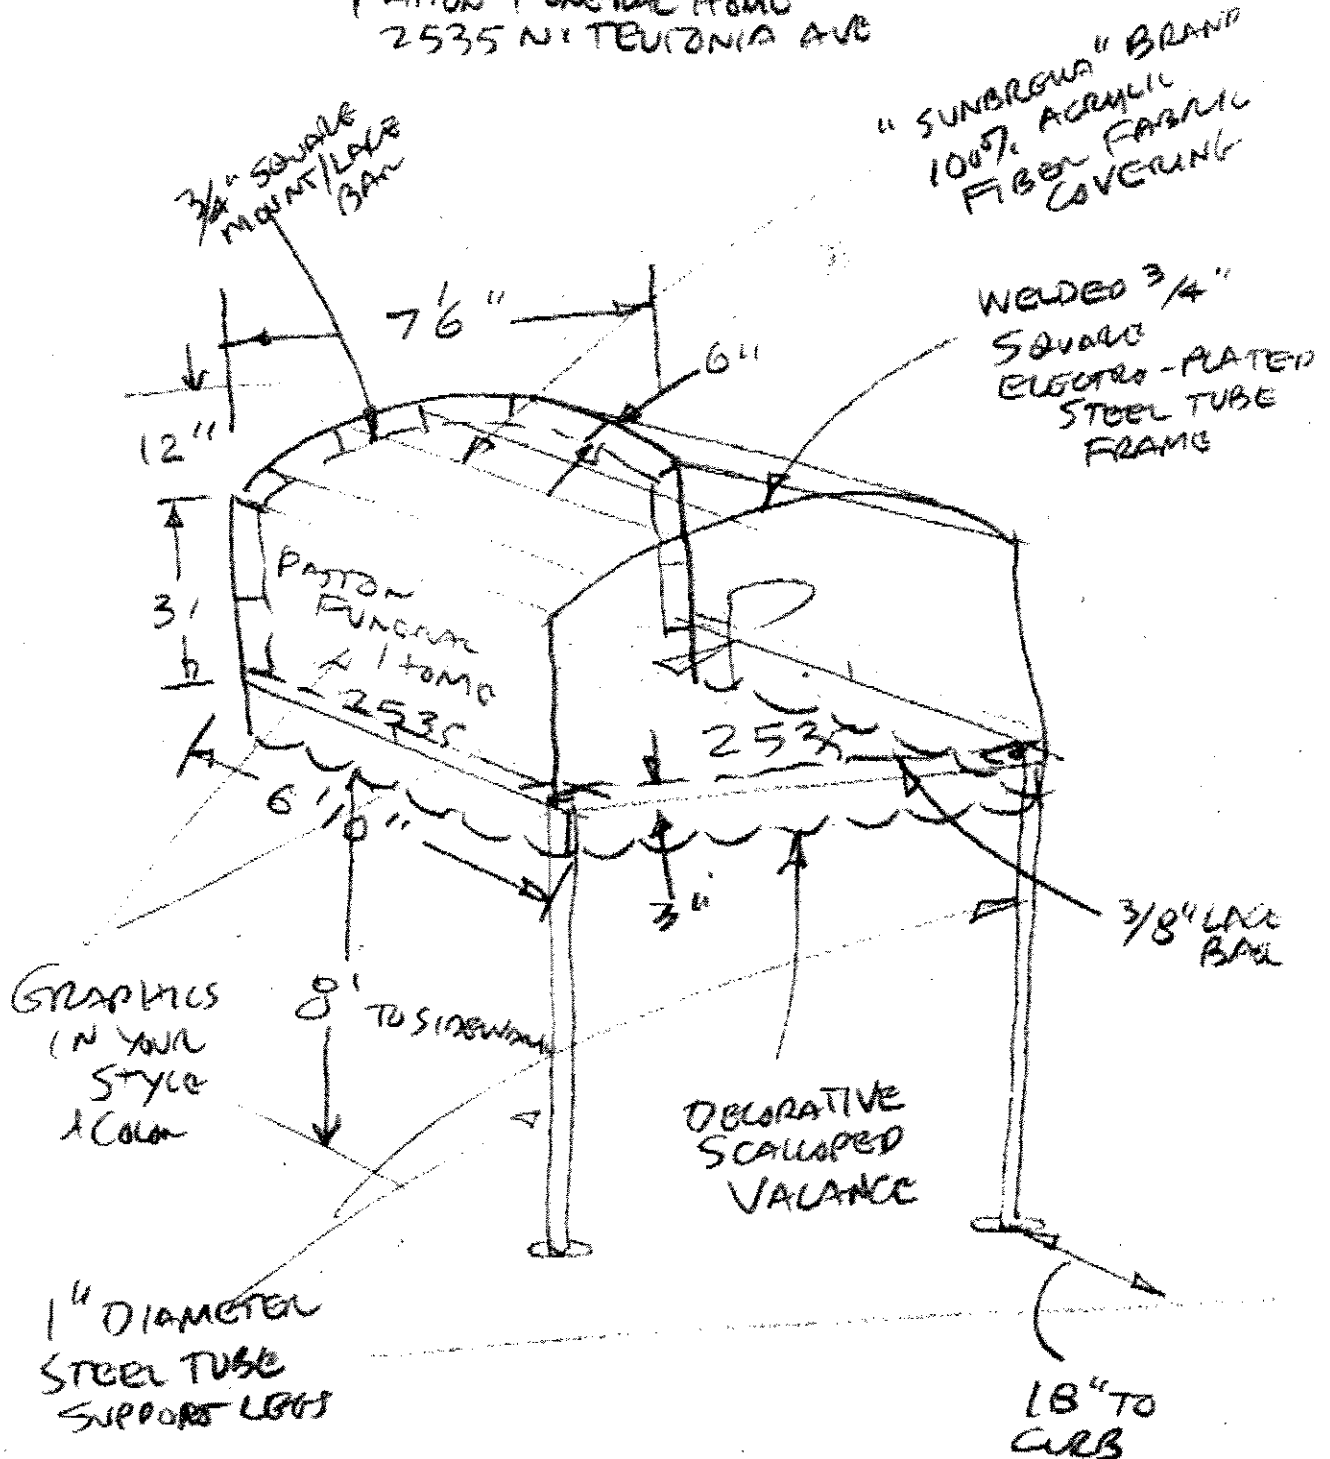 PATTON FUNERAL HOME
2535 N. TEUTONIA AVE
"SUNBRELLA" BRAND
100% ACRYLIC
FIBER FABRIC
COVERING
3/4" SQUARE
MOUNT/LACE
BAR
7'6"
6"
WELDED 3/4"
SQUARE
ELECTRO-PLATED
STEEL TUBE
FRAME
12"
3'
PATTON
FUNERAL
HOME
2535
2535
6'10"
3"
3/8" LACE
BAR
GRAPHICS
IN YOUR
STYLE
& COLOR
8' TO SIDEWALK
DECORATIVE
SCALLOPED
VALANCE
1" DIAMETER
STEEL TUBE
SUPPORT LEGS
18" TO
CURB